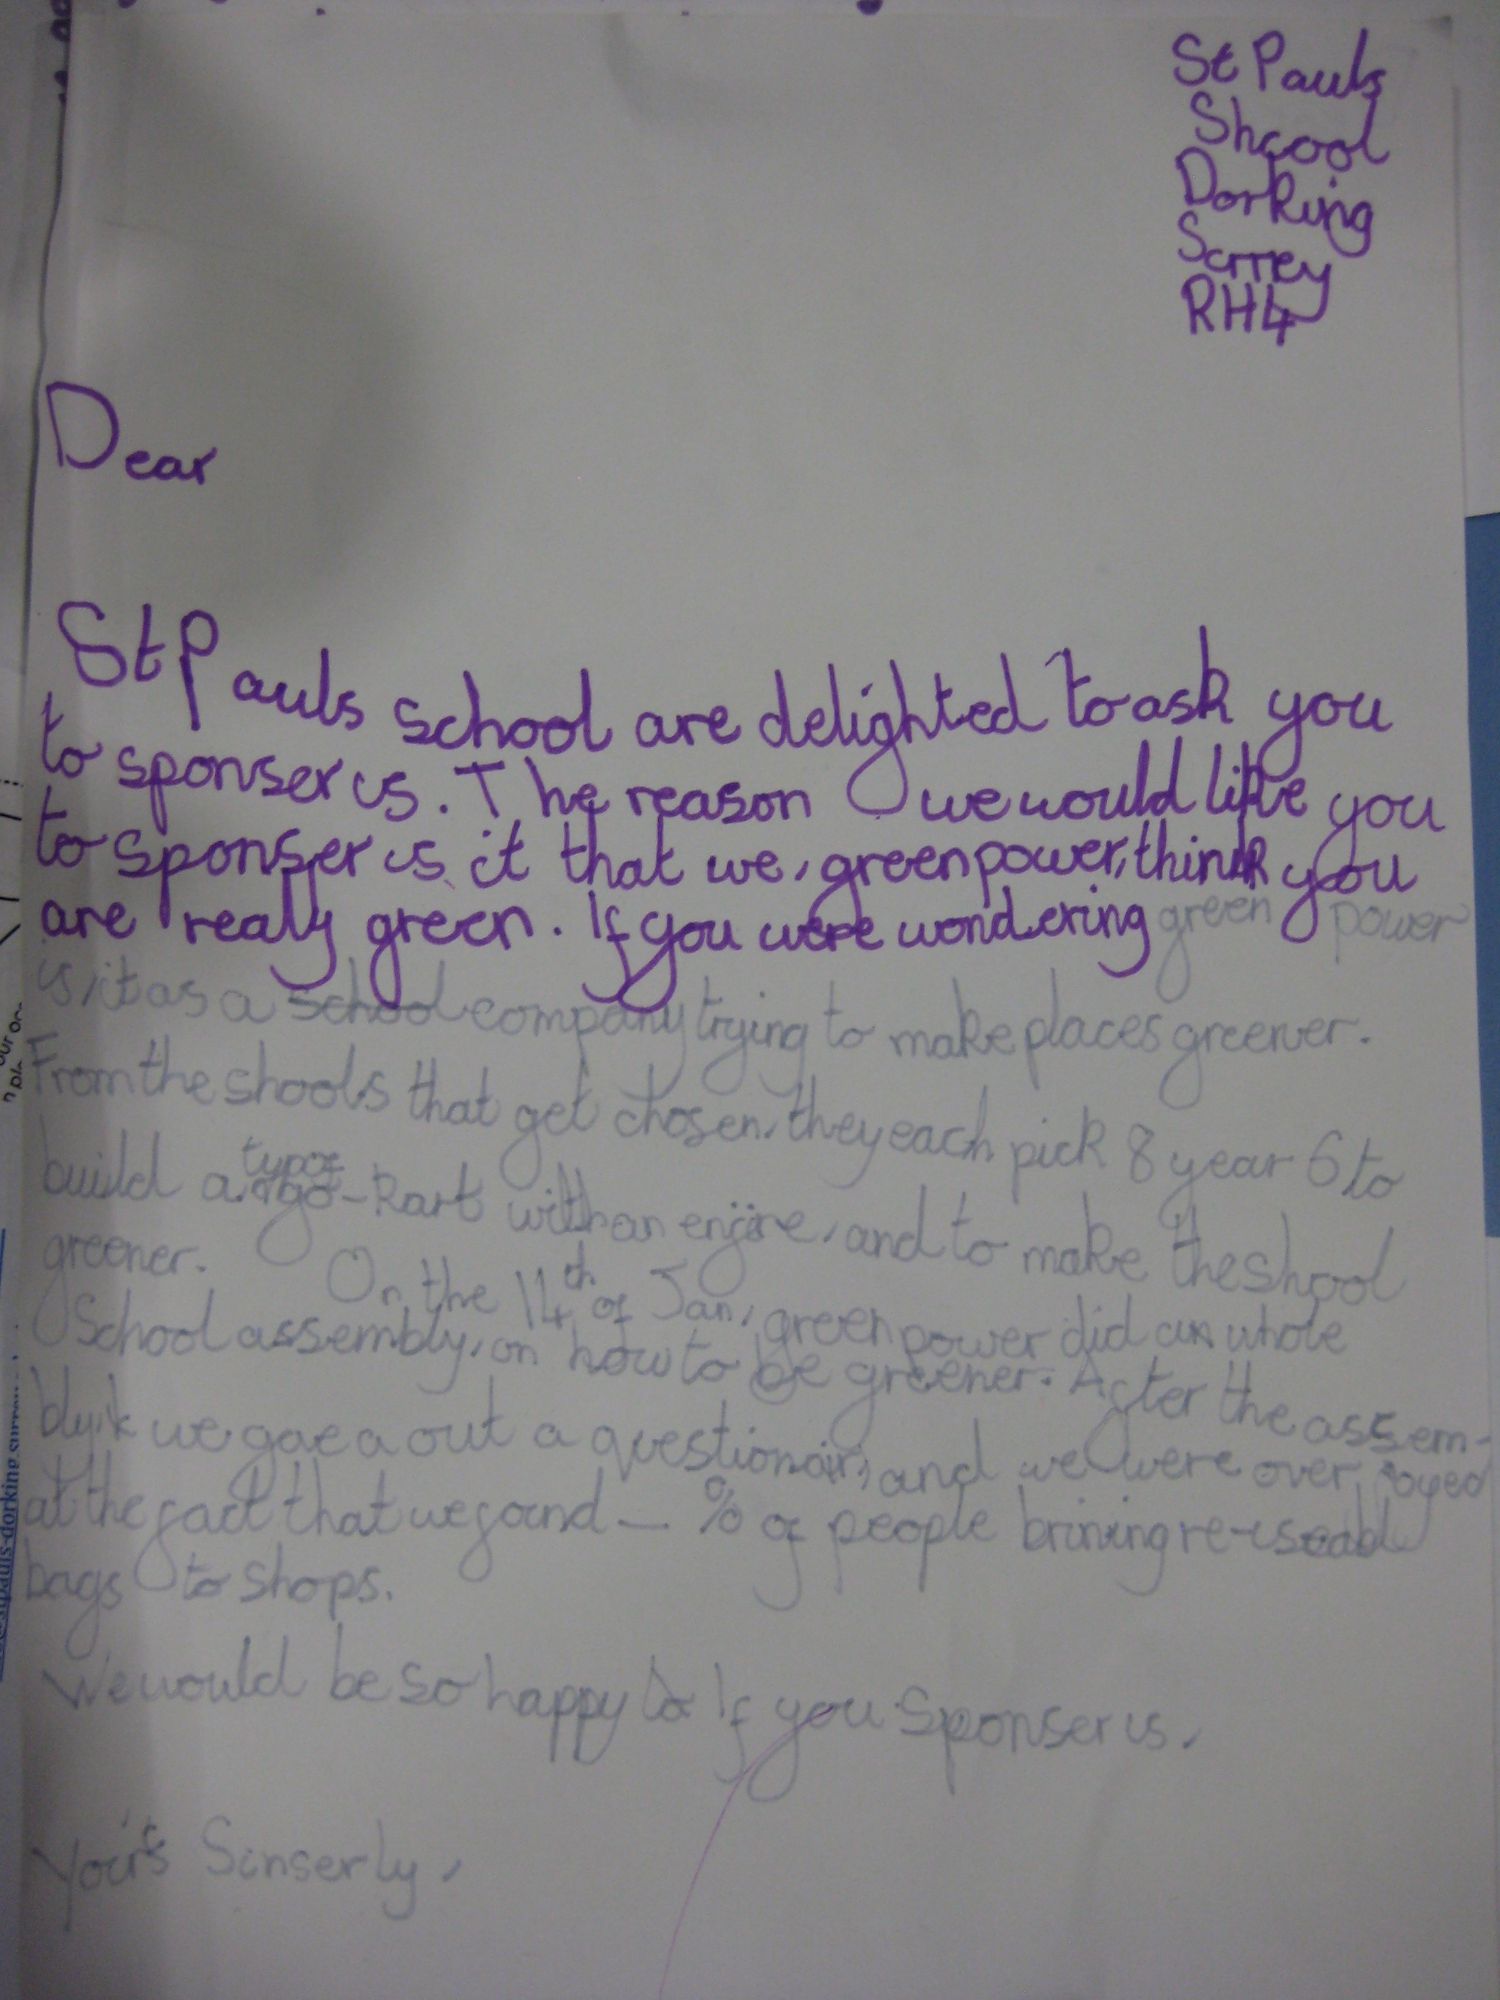 St Pauls
Shcool
Dorking
Surrey
RH4
Dear
St Pauls school are delighted to ask you
to sponser us. The reason we would like you
to sponser us it that we, greenpower, think you
are realy green. If you were wondering green power
is, it as a school company trying to make places greener.
From the shools that get chosen, they each pick 8 year 6 to
build a type of go-kart with an enjine, and to make the shool
greener. On the 14th of Jan, green power did an whole
School assembly, on how to be greener. After the assem-
we gave out a questionair, and we were over joyed
at the fact that we found — % of people brining re-useabl
bags to shops.
We would be so happy if you sponser us.
Your's Sinserly,